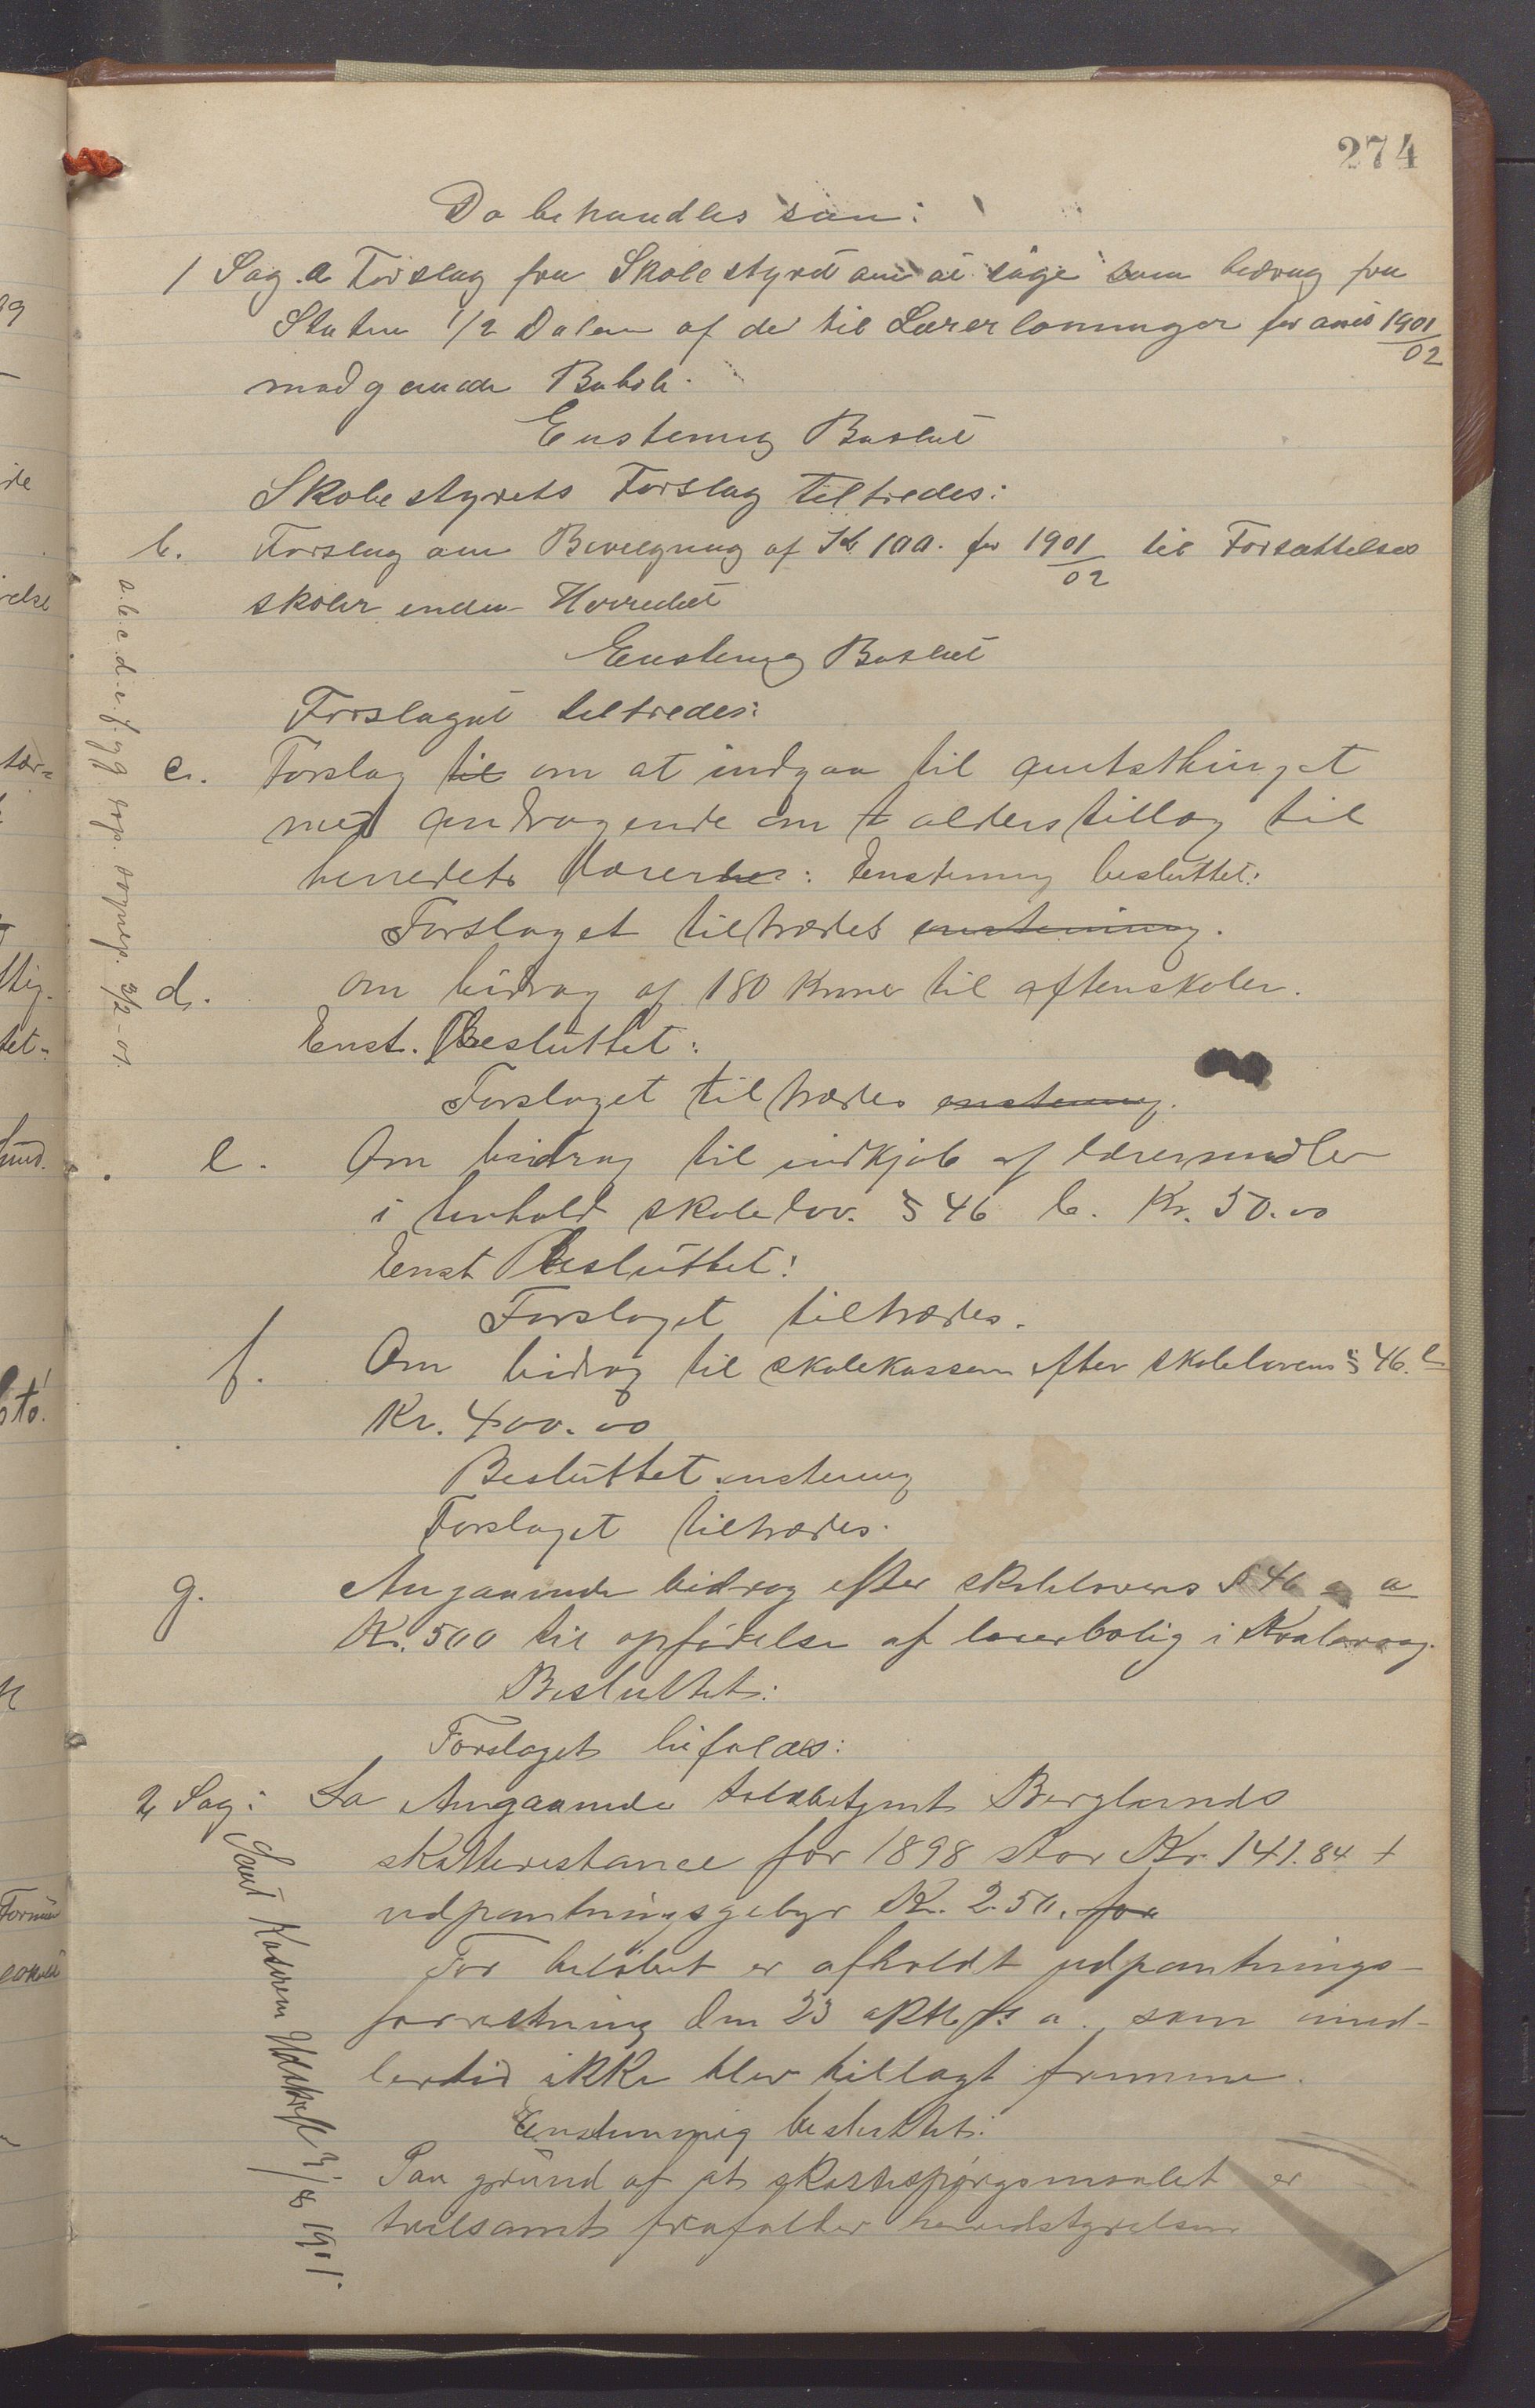 274
Da behandles san:
1 Sag. a Forslag fra Skolestyret om at søge som bedrag fra
Staten 1/2 Dalen af de til Lærerlønninger for aaret 1901/02
medgaaede Beløb.
Enstemig Beslut
Skolestyrets Forslag tiltredes:
b. Forslag om Bevilgning af Kr 100. for 1901/02 til Forsættelses
skoler inden Herredet
Enstemig Beslut
Forslaget tiltredes:
c. Forslag til om at indgaa til amtsthinget
med andragende om t alderstillæg til
herredets lærerne: Enstemmig besluttet:
Forslaget tiltrædes enstemmig.
d. om bidrag af 180 kroner til aftenskolen.
Enst. Besluttet:
Forslaget tiltrædes enstemmig.
e. Om bidrag til indkjøb af læremidler
i henhold skolelov. § 46 b. Kr. 50.00
Enst Besluttet:
Forslaget tiltrædes.
f. Om bidrag til skolekassen efter skolelovens § 46.
Kr. 400.00
Besluttet enstemig
Forslaget tiltrædes.
g. Angaaende bidrag efter skolelovens § 46 a
Kr. 500 til opførelse af lærerbolig i Kvalavaag.
Besluttet:
Forslaget bifaldes:
2 Sag: La Angaaende toldbetjent Berglands
skatterestance for 1898 stor Kr. 141.84 +
udpantningsgebyr Kr. 2.50. for
For beløbet er afholdt udpantnings-
forretning den 23 oktb f. a. som imid-
lertid ikke blev tillagt fremme.
Enstemmig besluttet:
Paa grund af at skattespørgsmaalet er
tvilsomt frafalder herredstyrelsen
a. b. c. d. e. f. g
Sendt Kasserer Udskrift 3/8 1901.